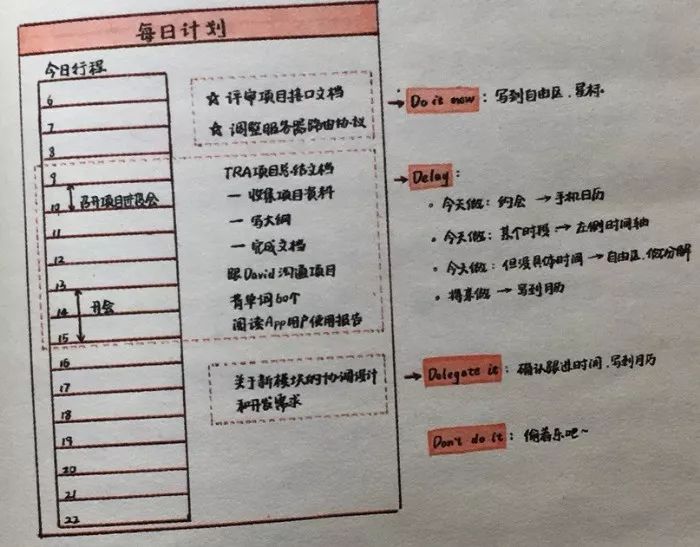 每日计划
今日行程
6
7
8
9
10 召开项目进度会
11
12
13
14 开会
15
16
17
18
19
20
21
22
☆ 评审项目接口文档
☆ 调整服务器路由协议
TRA项目总结文档
一 收集项目资料
一 写大纲
一 完成文档
跟David沟通项目
背单词60个
阅读App用户使用报告
关于新模块的协调设计
和开发需求
→ Do it now：写到自由区，星标。
→ Delay：
· 今天做：约会 → 手机日历
· 今天做：某个时段 → 左侧时间轴
· 今天做：但没具体时间 → 自由区，做分解
· 将来做 → 写到月历
→ Delegate it：确认跟进时间，写到月历
Don't do it：偷着乐吧~